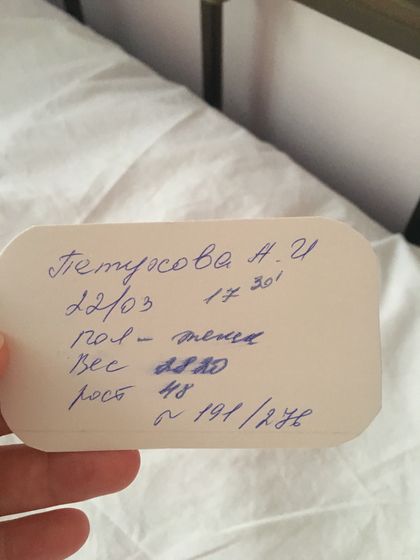 Петухова А. И
22/03 17 30'
пол - женск
Вес 2820
рост 48
~ 191/276